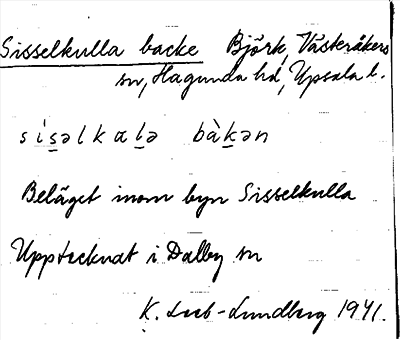 Sisselkulla backe Björk, Västeråkers
sn, Hagunda hd, Upsala l.
sìs̠əlkal̠ə bàk̠ən
Beläget inom byn Sisselkulla
Upptecknat i Dalby sn
K. Leeb-Lundberg 1941.